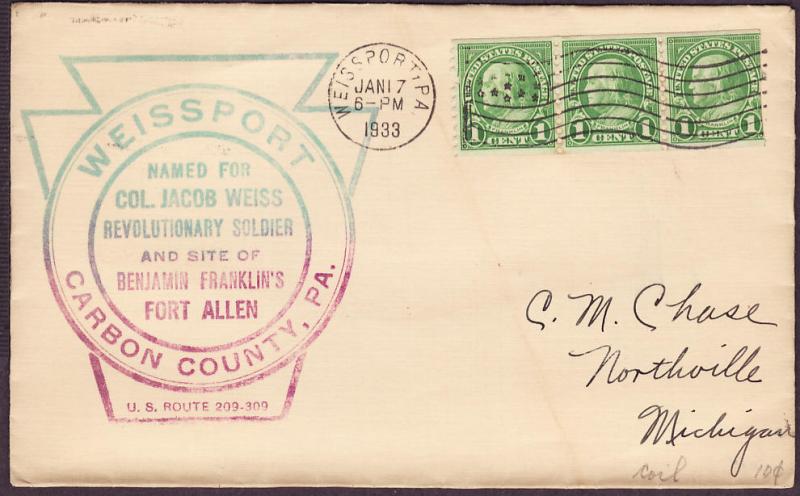 WEISSPORT
NAMED FOR
COL. JACOB WEISS
REVOLUTIONARY SOLDIER
AND SITE OF
BENJAMIN FRANKLIN'S
FORT ALLEN
CARBON COUNTY, PA.
U. S. ROUTE 209-309
WEISSPORT, PA.
JAN 17
6-PM
1933
UNITED STATES POSTAGE
1 CENT 1
UNITED STATES POSTAGE
FRANKLIN
1 CENT 1
UNITED STATES POSTAGE
FRANKLIN
1 CENT 1
C. M. Chase
Northville
Michigan
coil 10¢